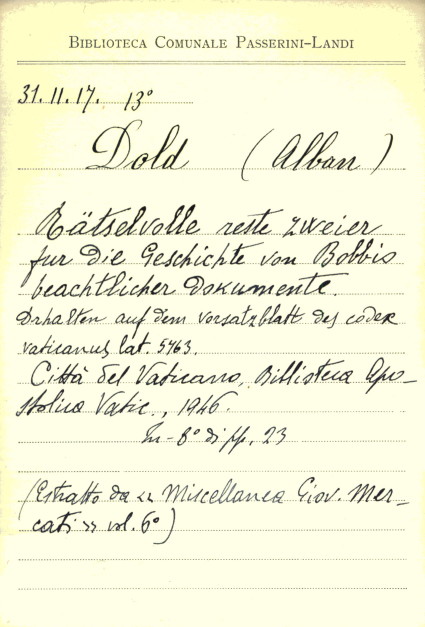 BIBLIOTECA COMUNALE PASSERINI-LANDI
31. 11. 17. 13°
Dold (Alban)
Rätselvolle reste zweier
fur die Geschichte von Bobbio
beachtlicher Dokumente.
Erhalten auf dem vorsatzblatt des codex
vaticanus lat. 5763.
Città del Vaticano, Billisteca Apo-
stolica Vatic., 1946.
In-8° di pp. 23
(Estratto da << Miscellanea Giov. Mer-
cati >> vol. 6°)